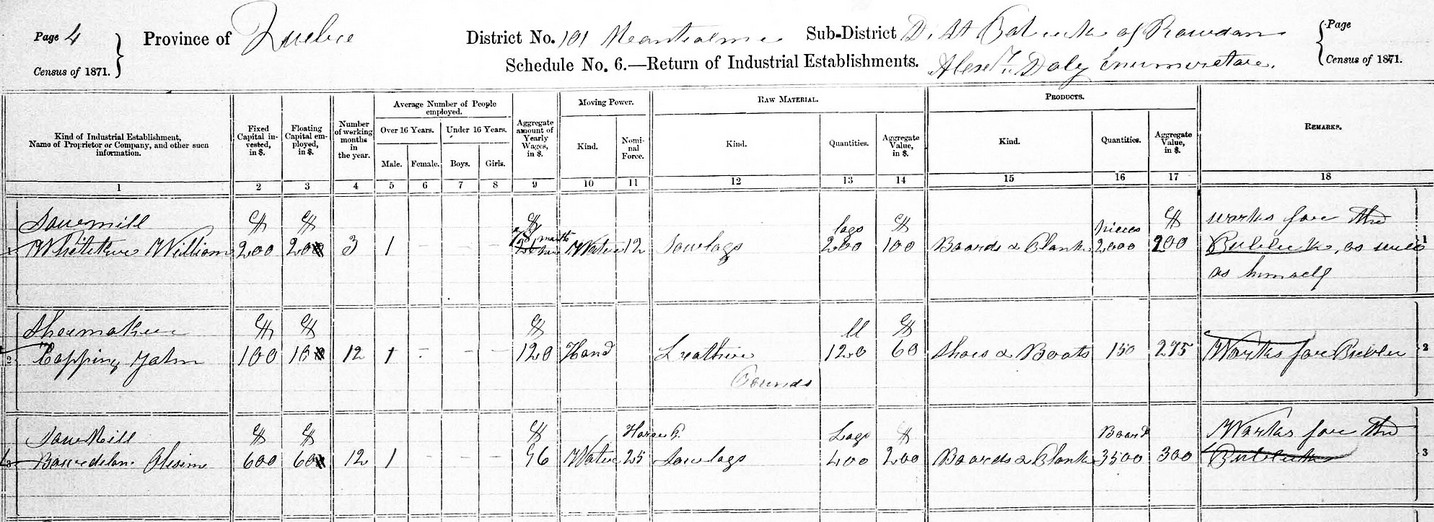 Page 4
Census of 1871.
Province of Quebec
District No. 101 Montcalm Sub-District D. St Patrick of Rawdon
Schedule No. 6.—Return of Industrial Establishments. Alexr. Daly Enumerator.
Page
Census of 1871.
Kind of Industrial Establishment, Name of Proprietor or Company, and other such information.
Fixed Capital invested, in $.
Floating Capital employed, in $.
Number of working months in the year.
Average Number of People employed.
Over 16 Years. Under 16 Years.
Male. Female. Boys. Girls.
Aggregate amount of Yearly Wages, in $.
Moving Power.
Kind. Nominal Force.
Raw Material.
Kind. Quantities. Aggregate Value, in $.
Products.
Kind. Quantities. Aggregate Value, in $.
Remarks.
1 2 3 4 5 6 7 8 9 10 11 12 13 14 15 16 17 18
Sawmill $ $ $ logs $ pieces $ works for the
1 William 200 20 3 1 - - - Water 12 Sawlogs 200 100 Boards & Plank 2000 200 Public, as well 1
as himself
Shoemaker $ $ $ ll $
2 Copping John 100 10 12 1 - - - 120 Hand Leather 120 60 Shoes & Boots 150 275 Works for Public 2
Pounds
Saw Mill $ $ $ Horse P. Logs $ Board Works for the
3 600 60 12 1 - - - 96 Water 25 Sawlogs 400 200 Boards & Plank 3500 300 Public 3